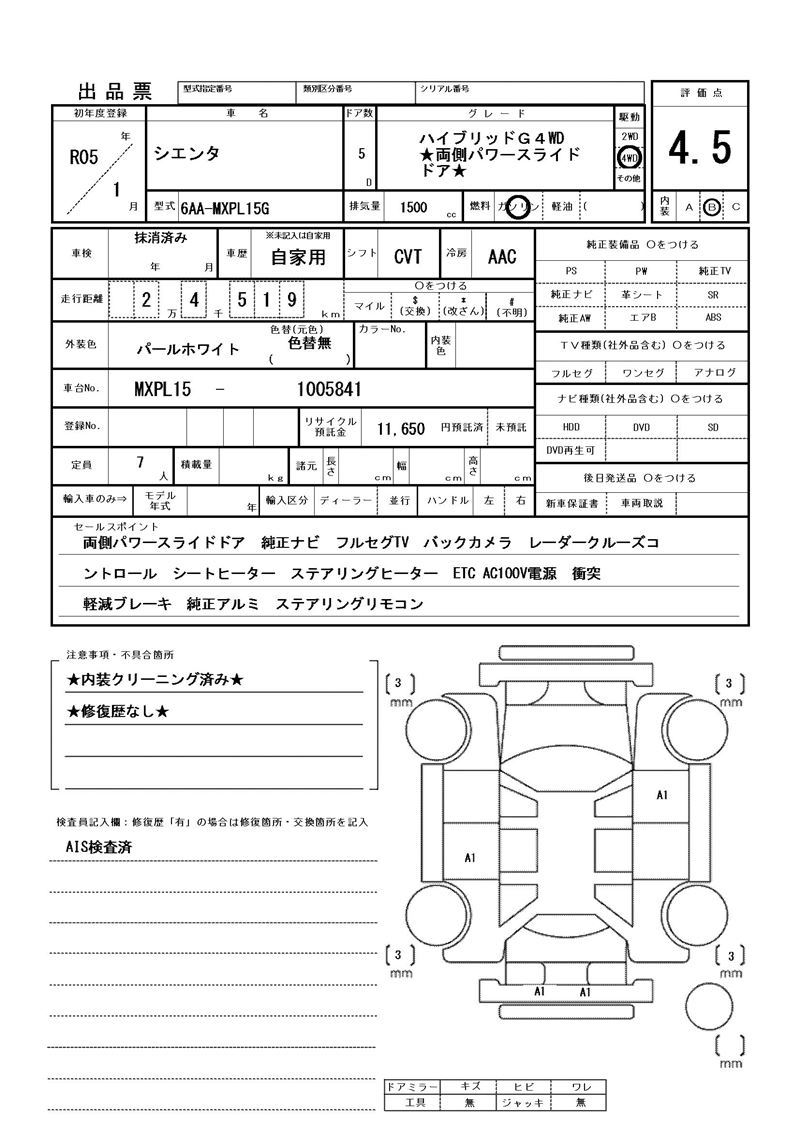 出品票 型式指定番号 類別区分番号 シリアル番号
評価点
4.5
内装 A B C
初年度登録 車名 ドア数 グレード 駆動
R05 年 1 月
シエンタ
5 D
ハイブリッドG4WD
★両側パワースライド
ドア★
2WD
4WD
その他
型式 6AA-MXPL15G 排気量 1500 cc 燃料 ガソリン 軽油 ( )
車検 抹消済み 年 月 車歴 ※未記入は自家用 自家用 シフト CVT 冷房 AAC
走行距離 2 万 4 千 5 1 9 km
○をつける
マイル $(交換) *(改ざん) #(不明)
外装色 パールホワイト 色替(元色) 色替無 ( ) カラーNo. 内装色
車台No. MXPL15 - 1005841
登録No. リサイクル預託金 11,650 円預託済 未預託
定員 7 人 積載量 kg 諸元 長さ cm 幅 cm 高さ cm
輸入車のみ⇒ モデル年式 年 輸入区分 ディーラー 並行 ハンドル 左 右
純正装備品 ○をつける
PS PW 純正TV
純正ナビ 革シート SR
純正AW エアB ABS
TV種類(社外品含む) ○をつける
フルセグ ワンセグ アナログ
ナビ種類(社外品含む) ○をつける
HDD DVD SD
DVD再生可
後日発送品 ○をつける
新車保証書 車両取説
セールスポイント
両側パワースライドドア 純正ナビ フルセグTV バックカメラ レーダークルーズコ
ントロール シートヒーター ステアリングヒーター ETC AC100V電源 衝突
軽減ブレーキ 純正アルミ ステアリングリモコン
注意事項・不具合箇所
★内装クリーニング済み★
★修復歴なし★
検査員記入欄:修復歴「有」の場合は修復箇所・交換箇所を記入
AIS検査済
3 mm
3 mm
A1
A1
3 mm
3 mm
A1 A1
mm
ドアミラー キズ ヒビ ワレ
工具 無 ジャッキ 無